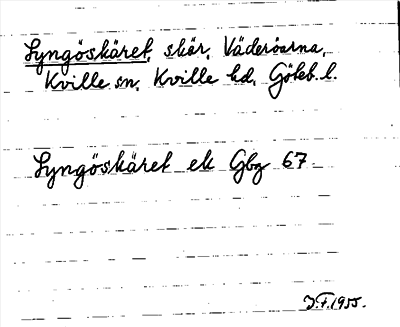 Lyngöskäret, skär, Väderöarna,
Kville sn, Kville hd, Göteb. l.
Lyngöskäret ek Gbg 67
J.F. 1955.